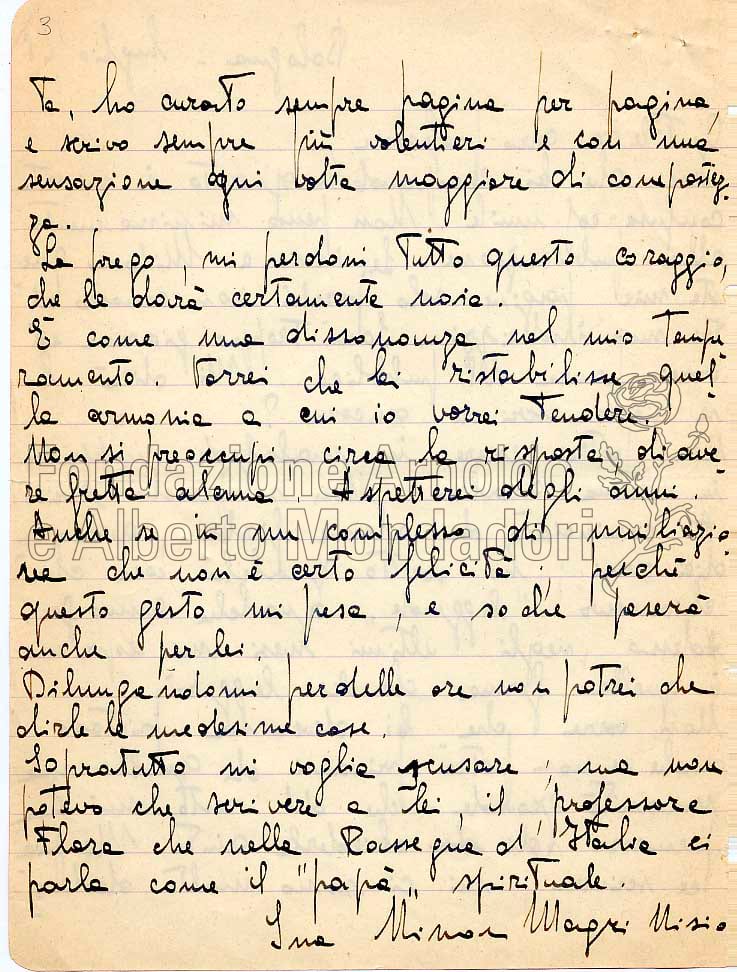 3
Ta, ho curato sempre pagina per pagina,
e scrivo sempre più volentieri e con una
sensazione ogni volta maggiore di compostez-
za.
La prego, mi perdoni tutto questo coraggio,
che le darà certamente noia.
È come una dissonanza nel mio tempe
ramento. Vorrei che lei ristabilisse quel-
la armonia a cui io vorrei tendere.
Non si preoccupi, circa la risposta, di ave
re fretta alcuna. Aspetterei degli anni.
Anche se in un complesso di umiliazio
ne che non è certo felicità; perché
questo gesto mi pesa, e so che peserà
anche per lei.
Dilungandomi per delle ore non potrei che
dirle le medesime cose.
Sopratutto mi voglia scusare; ma non
potevo che scrivere a lei, il professore
Flora che nella Rassegna d'Italia ci
parla come il "papà" spirituale.
Sua Magri
Fondazione Arnoldo
e Alberto Mondadori